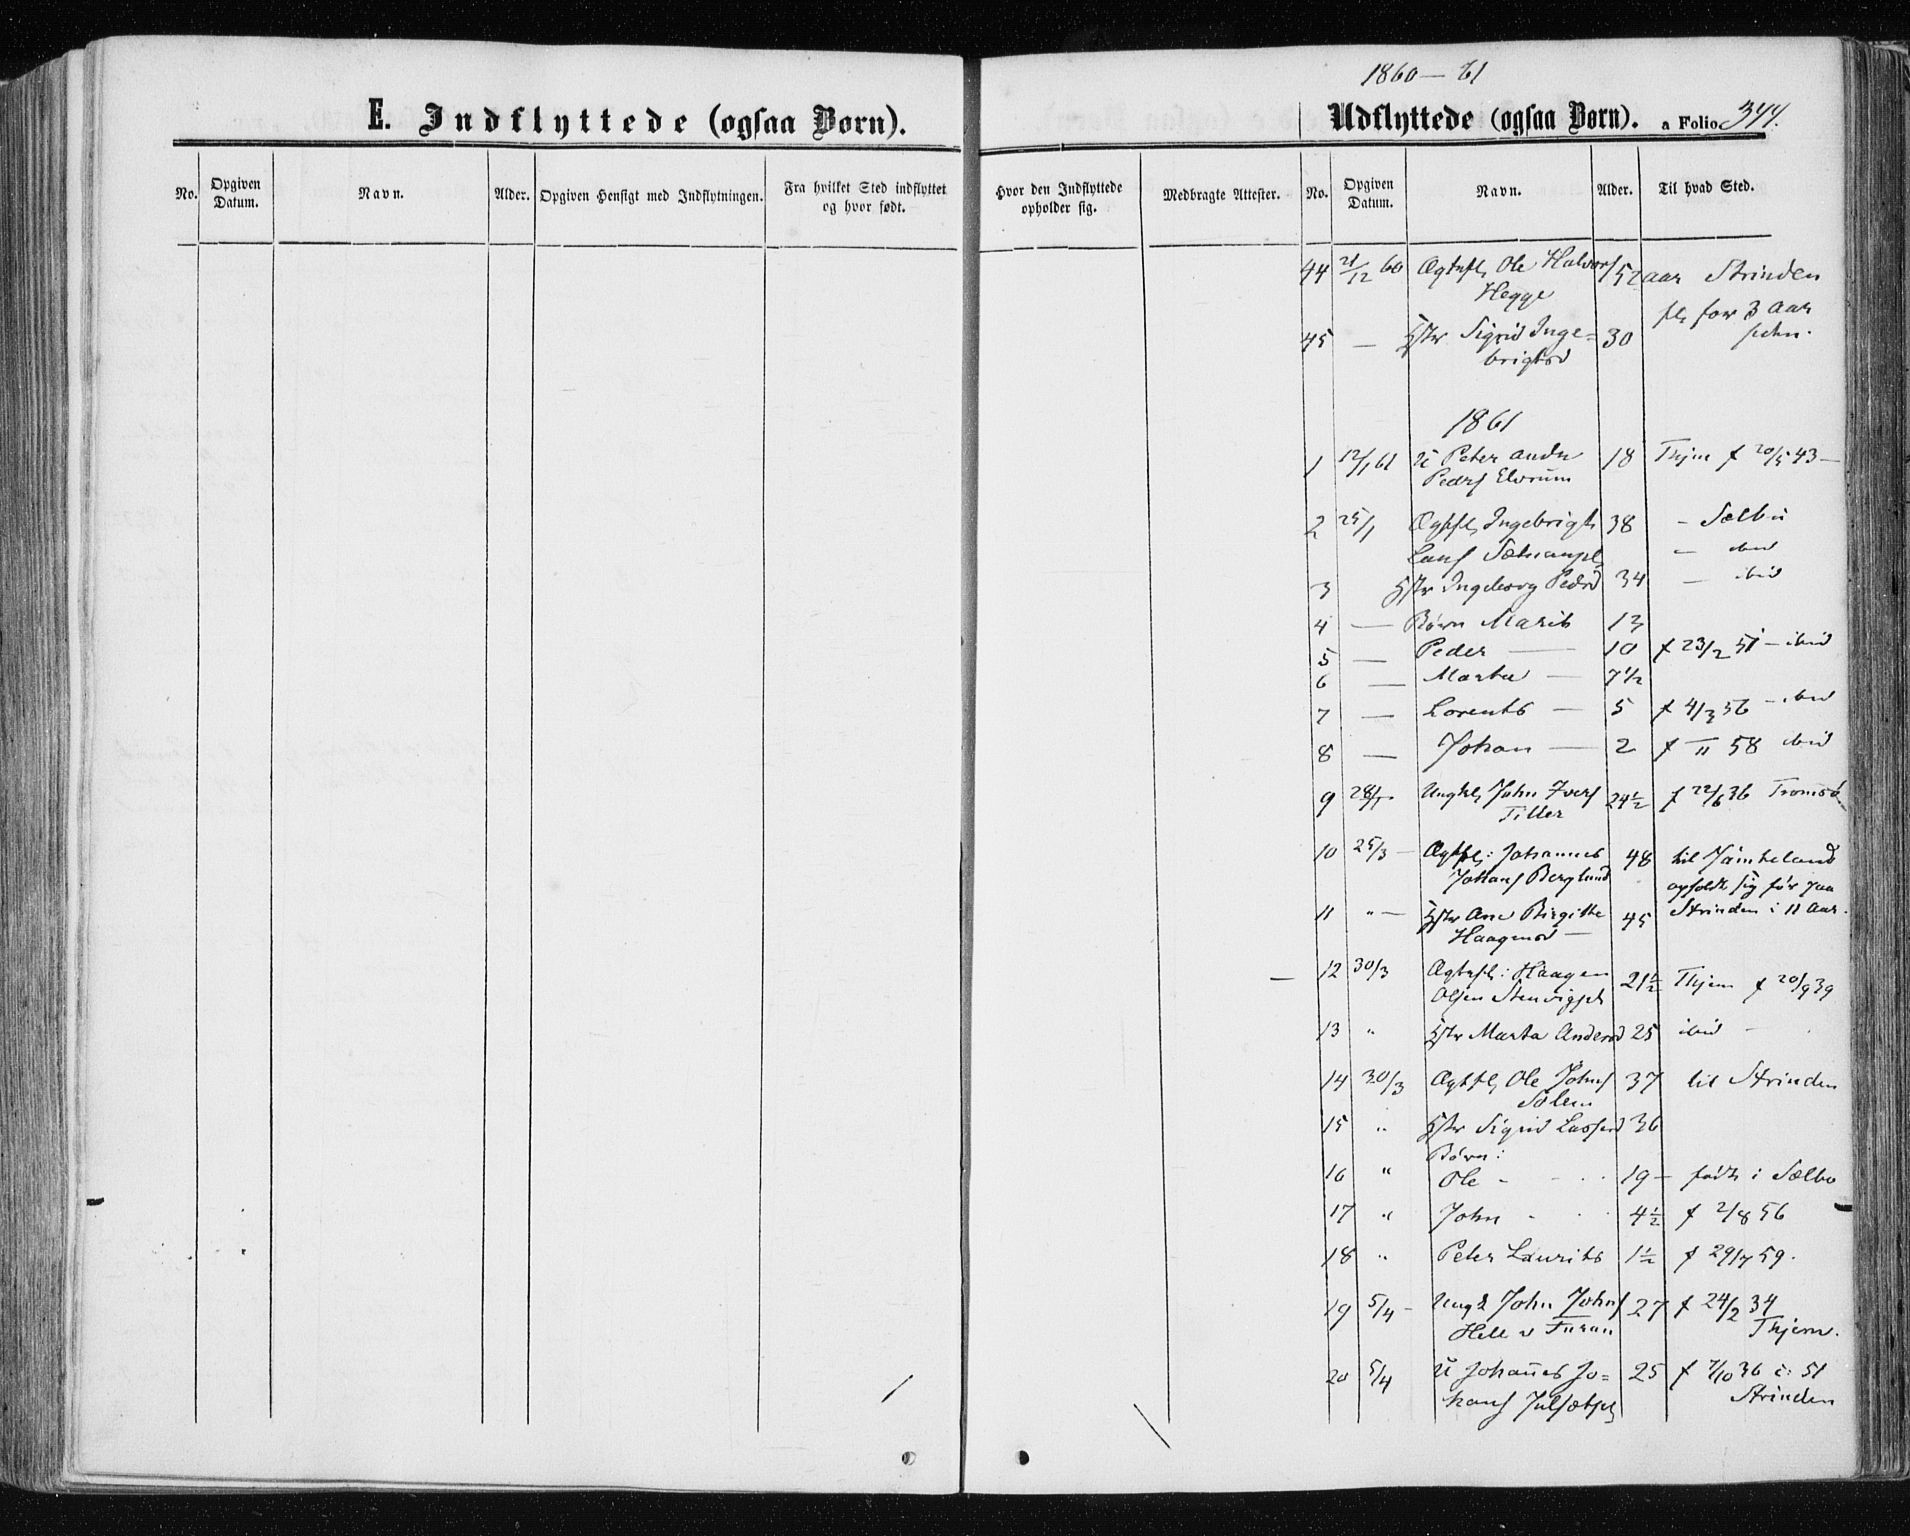 1860-61
E. Indflyttede (ogsaa Børn).
Udflyttede (ogsaa Børn). a Folio 344.
No. Opgiven Datum. Navn. Alder. Opgiven Hensigt med Indflytningen. Fra hvilket Sted indflyttet og hvor født. Hvor den Indflyttede opholder sig. Medbragte Attester. No. Opgiven Datum. Navn. Alder. Til hvad Sted.
44 21/12 60 Ole Halvors 52 aar Strinden
Hegge
for 3 Aar
45 — Sigrid Inge= 30
brigtsd
1861
1 12/1 61 U Peter Andr 18 Thjem f 20/5 43 —
Peders Elvrum
2 25/1 Ingebrigt 38 – Sælbu
Lars – ibid
3 Ingeborg Pedsd 34 — ibid
4 — Børn Marit 13
5 — Peder — 10 f 23/2 51 – ibid
6 — Marta — 7 1/2
7 — Lorents — 5 f 4/3 56 – ibid
8 — Johan — 2 f — 11 58 ibid
9 28/1 Ungkl John Ivers 24 1/2 f 22/6 36 Tromsö
Tiller
10 25/3 — Johannes 48 til Jämteland
Johans Berglund opholdt sig før paa
11 " — Ane Birgitte 45 Strinden i 11 Aar.
Haagensd —
12 30/3 Haagen 21 1/2 Thjem f 20/9 39
Olsen
13 " Marta Andersd 25 ibid –
14 30/3 Ole Johns 37 til Strinden
Solem
15 " Sigrid Larsesd 36
Børn:
16 " Ole - 19 — født i Sælbo
17 " John - 4 1/2 f 2/8 56
18 " Peter Laurits 1 1/2 f 29/7 59.
19 5/4 – Ungk John Johns 27 f 24/2 34
Hell v Turan Thjem.
20 5/4 U Johañes Jo= 25 f 7/10 36 i 51
hans Strinden